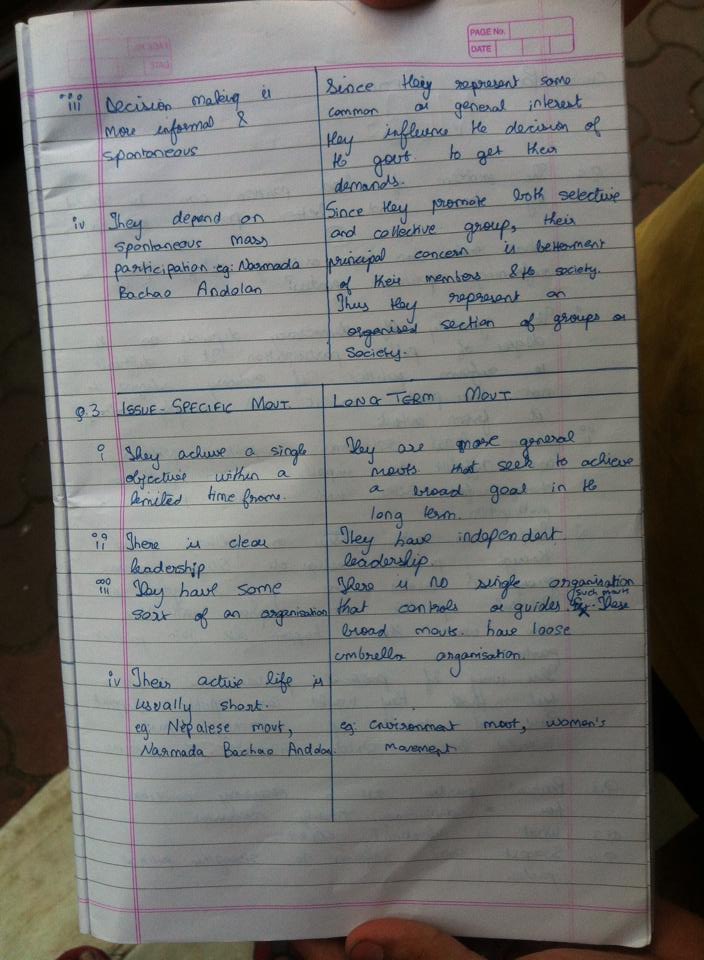 PAGE No.
DATE
iii Decision making is
more informal &
spontaneous
Since they represent some
common or general interest
they influence the decision of
the govt. to get their
demands.
iv They depend on
spontaneous mass
participation eg: Narmada
Bachao Andolan
Since they promote both selective
and collective group, their
principal concern is betterment
of their members & the society.
Thus they represent an
organised section of groups or
society.
Q.3 ISSUE-SPECIFIC MOVT.
LONG TERM MOVT
i They achieve a single
objective within a
limited time frame.
They are more general
movts that seek to achieve
a broad goal in the
long term.
ii There is clear
leadership
They have independent
leadership.
iii They have some
sort of an organisation
There is no single organisation
that controls or guides such movts. These
broad movts. have loose
umbrella organisation.
iv Their active life is
usually short.
eg: Nepalese movt,
Narmada Bachao Andolan.
eg: environment movt, women's
movement